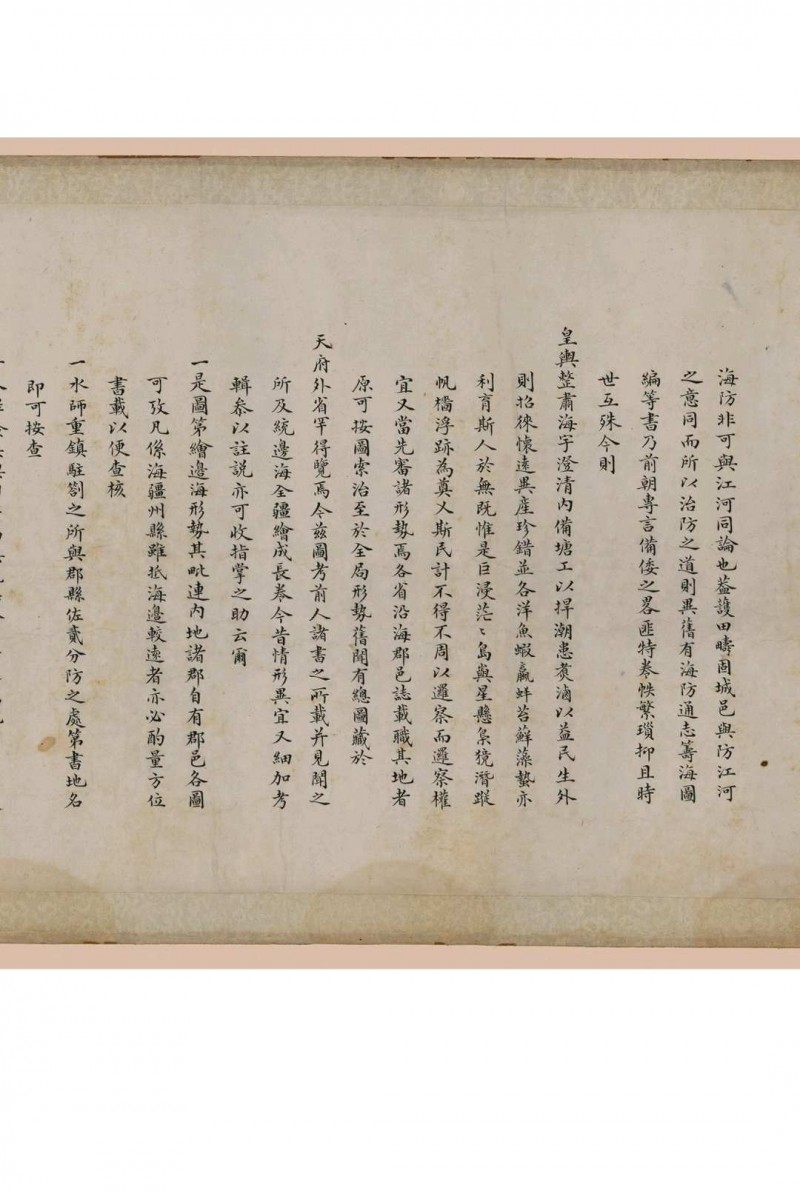 海防非可與江河同論也蓋護田疇固城邑與防江河
之意同而所以治防之道則異舊有海防通志籌海圖
編等書乃前朝專言備倭之畧匪特卷帙繁瑣抑且時
世互殊今則
皇輿整肅海宇澄清內備塘工以捍潮患煑滷以益民生外
則招徠懷遠異產珍錯並各洋魚蝦蠃蚌苔蘚藻蟄亦
利育斯人於無既惟是巨浸茫〻島與星懸梟獍潛蹤
帆檣浮跡為奠乂斯民計不得不周以邏察而邏察權
宜又當先審諸形勢焉各省沿海郡邑誌載職其地者
原可按圖索治至於全局形勢舊聞有總圖藏於
天府外省罕得覽焉今茲圖考前人諸書之所載并見聞之
所及統邊海全疆繪成長卷今昔情形異宜又細加考
輯叅以註說亦可收指掌之助云爾
一是圖第繪邊海形勢其毗連內地諸郡自有郡邑各圖
可攷凡係海疆州縣雖抵海邊較遠者亦必酌量方位
書載以便查核
一水師重鎮駐劄之所與郡縣佐貳分防之處第書地名
即可按查